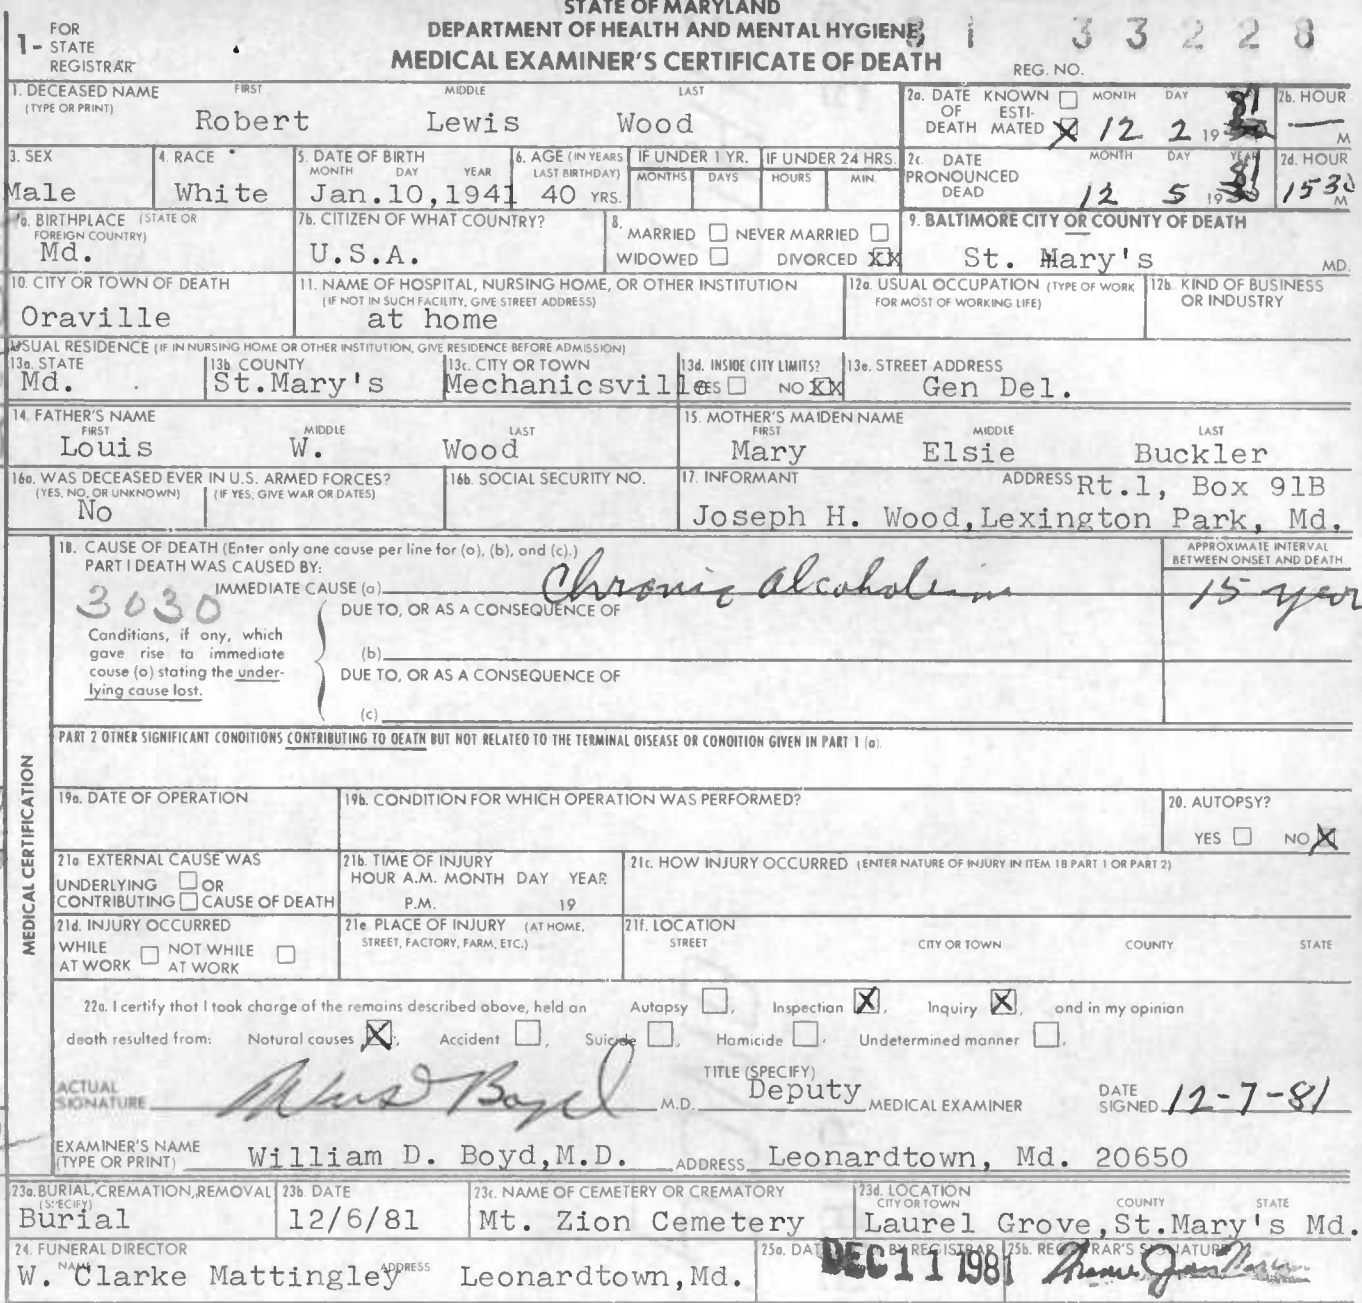 STATE OF MARYLAND
DEPARTMENT OF HEALTH AND MENTAL HYGIENE
MEDICAL EXAMINER'S CERTIFICATE OF DEATH
1- FOR STATE REGISTRAR
REG. NO. 81 33228
1. DECEASED NAME (TYPE OR PRINT) FIRST MIDDLE LAST
Robert Lewis Wood
2a. DATE OF DEATH KNOWN ☐ ESTIMATED ☒ MONTH DAY
12 2 19 81
2b. HOUR — M
3. SEX
Male
4. RACE
White
5. DATE OF BIRTH MONTH DAY YEAR
Jan.10,1941
6. AGE (IN YEARS LAST BIRTHDAY)
40 YRS.
IF UNDER 1 YR. MONTHS DAYS
IF UNDER 24 HRS. HOURS MIN.
2c. DATE PRONOUNCED DEAD MONTH DAY YEAR
12 5 19 81
2d. HOUR
1530 M
7a. BIRTHPLACE (STATE OR FOREIGN COUNTRY)
Md.
7b. CITIZEN OF WHAT COUNTRY?
U.S.A.
8. MARRIED ☐ NEVER MARRIED ☐
WIDOWED ☐ DIVORCED XX
9. BALTIMORE CITY OR COUNTY OF DEATH
St. Mary's MD.
10. CITY OR TOWN OF DEATH
Oraville
11. NAME OF HOSPITAL, NURSING HOME, OR OTHER INSTITUTION
(IF NOT IN SUCH FACILITY, GIVE STREET ADDRESS)
at home
12a. USUAL OCCUPATION (TYPE OF WORK FOR MOST OF WORKING LIFE)
12b. KIND OF BUSINESS OR INDUSTRY
USUAL RESIDENCE (IF IN NURSING HOME OR OTHER INSTITUTION, GIVE RESIDENCE BEFORE ADMISSION)
13a. STATE
Md.
13b. COUNTY
St.Mary's
13c. CITY OR TOWN
Mechanicsville
13d. INSIDE CITY LIMITS?
YES ☐ NO XX
13e. STREET ADDRESS
Gen Del.
14. FATHER'S NAME FIRST MIDDLE LAST
Louis W. Wood
15. MOTHER'S MAIDEN NAME FIRST MIDDLE LAST
Mary Elsie Buckler
16a. WAS DECEASED EVER IN U.S. ARMED FORCES?
(YES, NO, OR UNKNOWN) (IF YES, GIVE WAR OR DATES)
No
16b. SOCIAL SECURITY NO.
17. INFORMANT ADDRESS Rt.1, Box 91B
Joseph H. Wood,Lexington Park, Md.
MEDICAL CERTIFICATION
18. CAUSE OF DEATH (Enter only one cause per line for (a), (b), and (c).)
PART I DEATH WAS CAUSED BY:
APPROXIMATE INTERVAL BETWEEN ONSET AND DEATH
IMMEDIATE CAUSE (a) Chronic Alcoholism 15 year
3030
DUE TO, OR AS A CONSEQUENCE OF
Conditions, if any, which gave rise to immediate cause (a) stating the underlying cause last.
(b)
DUE TO, OR AS A CONSEQUENCE OF
(c)
PART 2 OTHER SIGNIFICANT CONDITIONS CONTRIBUTING TO DEATH BUT NOT RELATED TO THE TERMINAL DISEASE OR CONDITION GIVEN IN PART 1 (a).
19a. DATE OF OPERATION
19b. CONDITION FOR WHICH OPERATION WAS PERFORMED?
20. AUTOPSY?
YES ☐ NO ☒
21a EXTERNAL CAUSE WAS
UNDERLYING ☐ OR
CONTRIBUTING ☐ CAUSE OF DEATH
21b. TIME OF INJURY
HOUR A.M. MONTH DAY YEAR
P.M. 19
21c. HOW INJURY OCCURRED (ENTER NATURE OF INJURY IN ITEM 18 PART 1 OR PART 2)
21d. INJURY OCCURRED
WHILE AT WORK ☐ NOT WHILE AT WORK ☐
21e PLACE OF INJURY (AT HOME, STREET, FACTORY, FARM, ETC.)
21f. LOCATION
STREET CITY OR TOWN COUNTY STATE
22a. I certify that I took charge of the remains described above, held an Autopsy ☐, Inspection ☒, Inquiry ☒, and in my opinion
death resulted from: Natural causes ☒, Accident ☐, Suicide ☐, Homicide ☐, Undetermined manner ☐.
ACTUAL SIGNATURE Wm D Boyd M.D.
TITLE (SPECIFY)
Deputy MEDICAL EXAMINER
DATE SIGNED 12-7-81
EXAMINER'S NAME (TYPE OR PRINT) William D. Boyd,M.D. ADDRESS Leonardtown, Md. 20650
23a. BURIAL, CREMATION, REMOVAL (SPECIFY)
Burial
23b. DATE
12/6/81
23c. NAME OF CEMETERY OR CREMATORY
Mt. Zion Cemetery
23d. LOCATION CITY OR TOWN COUNTY STATE
Laurel Grove,St.Mary's Md.
24. FUNERAL DIRECTOR
NAME ADDRESS
W. Clarke Mattingley Leonardtown,Md.
25a. DATE BY REGISTRAR
DEC 11 1981
25b. REGISTRAR'S SIGNATURE